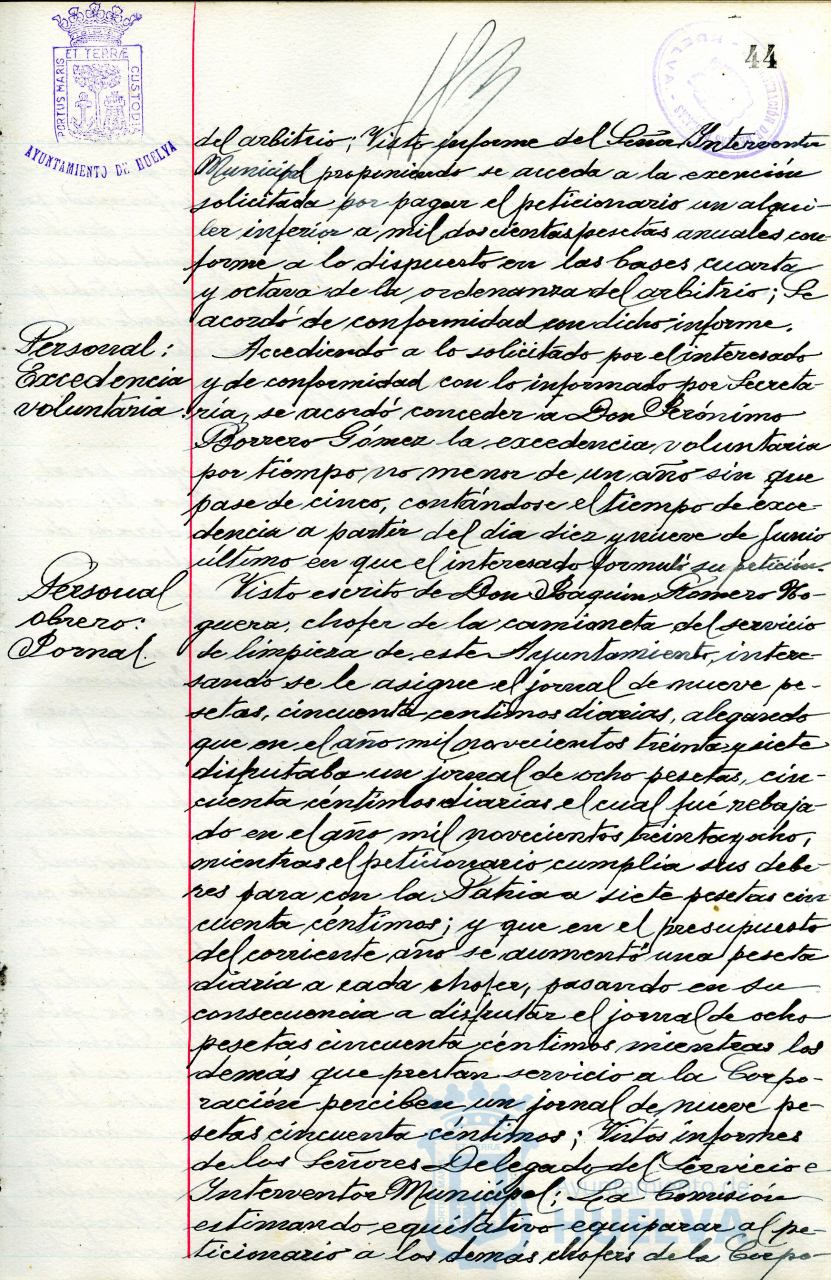 44
ET TERRÆ
PORTUS MARIS
CUSTODIA
AYUNTAMIENTO DE HUELVA
del arbitrio; Visto informe del Señor Interventor
Municipal proponiendo se acceda a la exención
solicitada por pagar el peticionario un alqui-
ler inferior a mil doscientas pesetas anuales con-
forme a lo dispuesto en las bases cuarta
y octava de la ordenanza del arbitrio; Se
acordó de conformidad con dicho informe.
Personal:
Excedencia
voluntaria.
Accediendo a lo solicitado por el interesado
y de conformidad con lo informado por Secreta-
ría, se acordó conceder a Don Jerónimo
Borrero Gómez la excedencia voluntaria
por tiempo no menor de un año sin que
pase de cinco, contándose el tiempo de exce-
dencia a partir del dia diez y nueve de Junio
último en que el interesado formuló su petición.
Personal
obrero:
Jornal.
Visto escrito de Don Joaquín Romero No-
guera, chofer de la camioneta del servicio
de limpieza de este Ayuntamiento, intere-
sando se le asigne el jornal de nueve pe-
setas, cincuenta centimos diarias, alegando
que en el año mil novecientos treinta y siete
disfrutaba un jornal de ocho pesetas, cin-
cuenta céntimos diarias el cual fué rebaja-
do en el año mil novecientos treinta y ocho,
mientras el peticionario cumplía sus debe-
res para con la Patria a siete pesetas cin-
cuenta céntimos; y que en el presupuesto
del corriente año se aumentó una peseta
diaria a cada chofer, pasando en su
consecuencia a disfrutar el jornal de ocho
pesetas cincuenta céntimos mientras los
demás que prestan servicio a la Corpo-
ración perciben un jornal de nueve pe-
setas cincuenta céntimos; Vistos informes
de los Señores Delegado del Servicio e
Interventor Municipal; La Comisión
estimando equitativo equiparar al pe-
ticionario a los demás chofers de la Corpo-
Ayuntamiento de
HUELVA